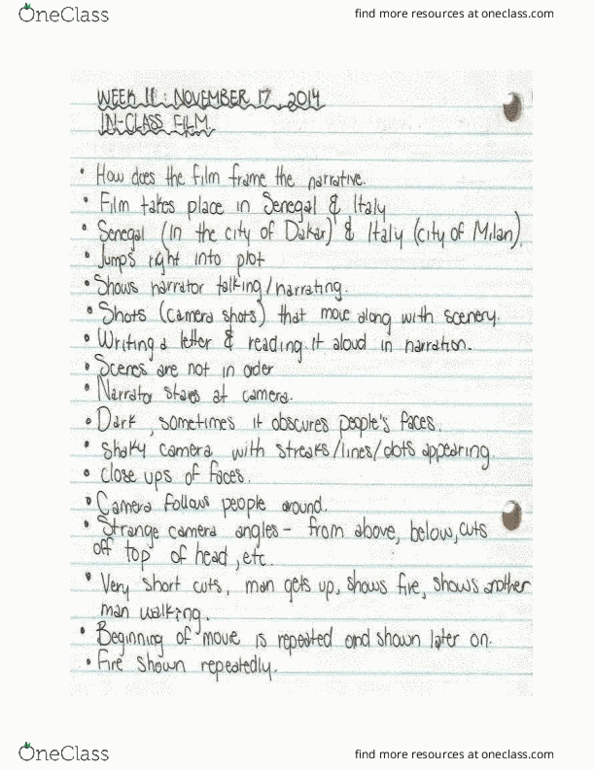 OneClass
find more resources at oneclass.com
WEEK 11 : NOVEMBER 17, 2014
IN-CLASS FILM
• How does the film frame the narrative.
• Film takes place in Senegal & Italy
• Senegal (in the city of Dakar) & Italy (city of Milan).
• Jumps right into plot
• Shows narrator talking/narrating.
• Shots (camera shots) that move along with scenery.
• Writing a letter & reading it aloud in narration.
• Scenes are not in order
• Narrator stares at camera.
• Dark, sometimes it obscures people's faces.
• Shaky camera with streaks/lines/dots appearing.
• Close ups of faces.
• Camera follows people around.
• Strange camera angles - from above, below, cuts
off top of head, etc.
• Very short cuts, man gets up, shows fire, shows another
man walking.
• Beginning of move is repeated and shown later on.
• Fire shown repeatedly.
OneClass
find more resources at oneclass.com